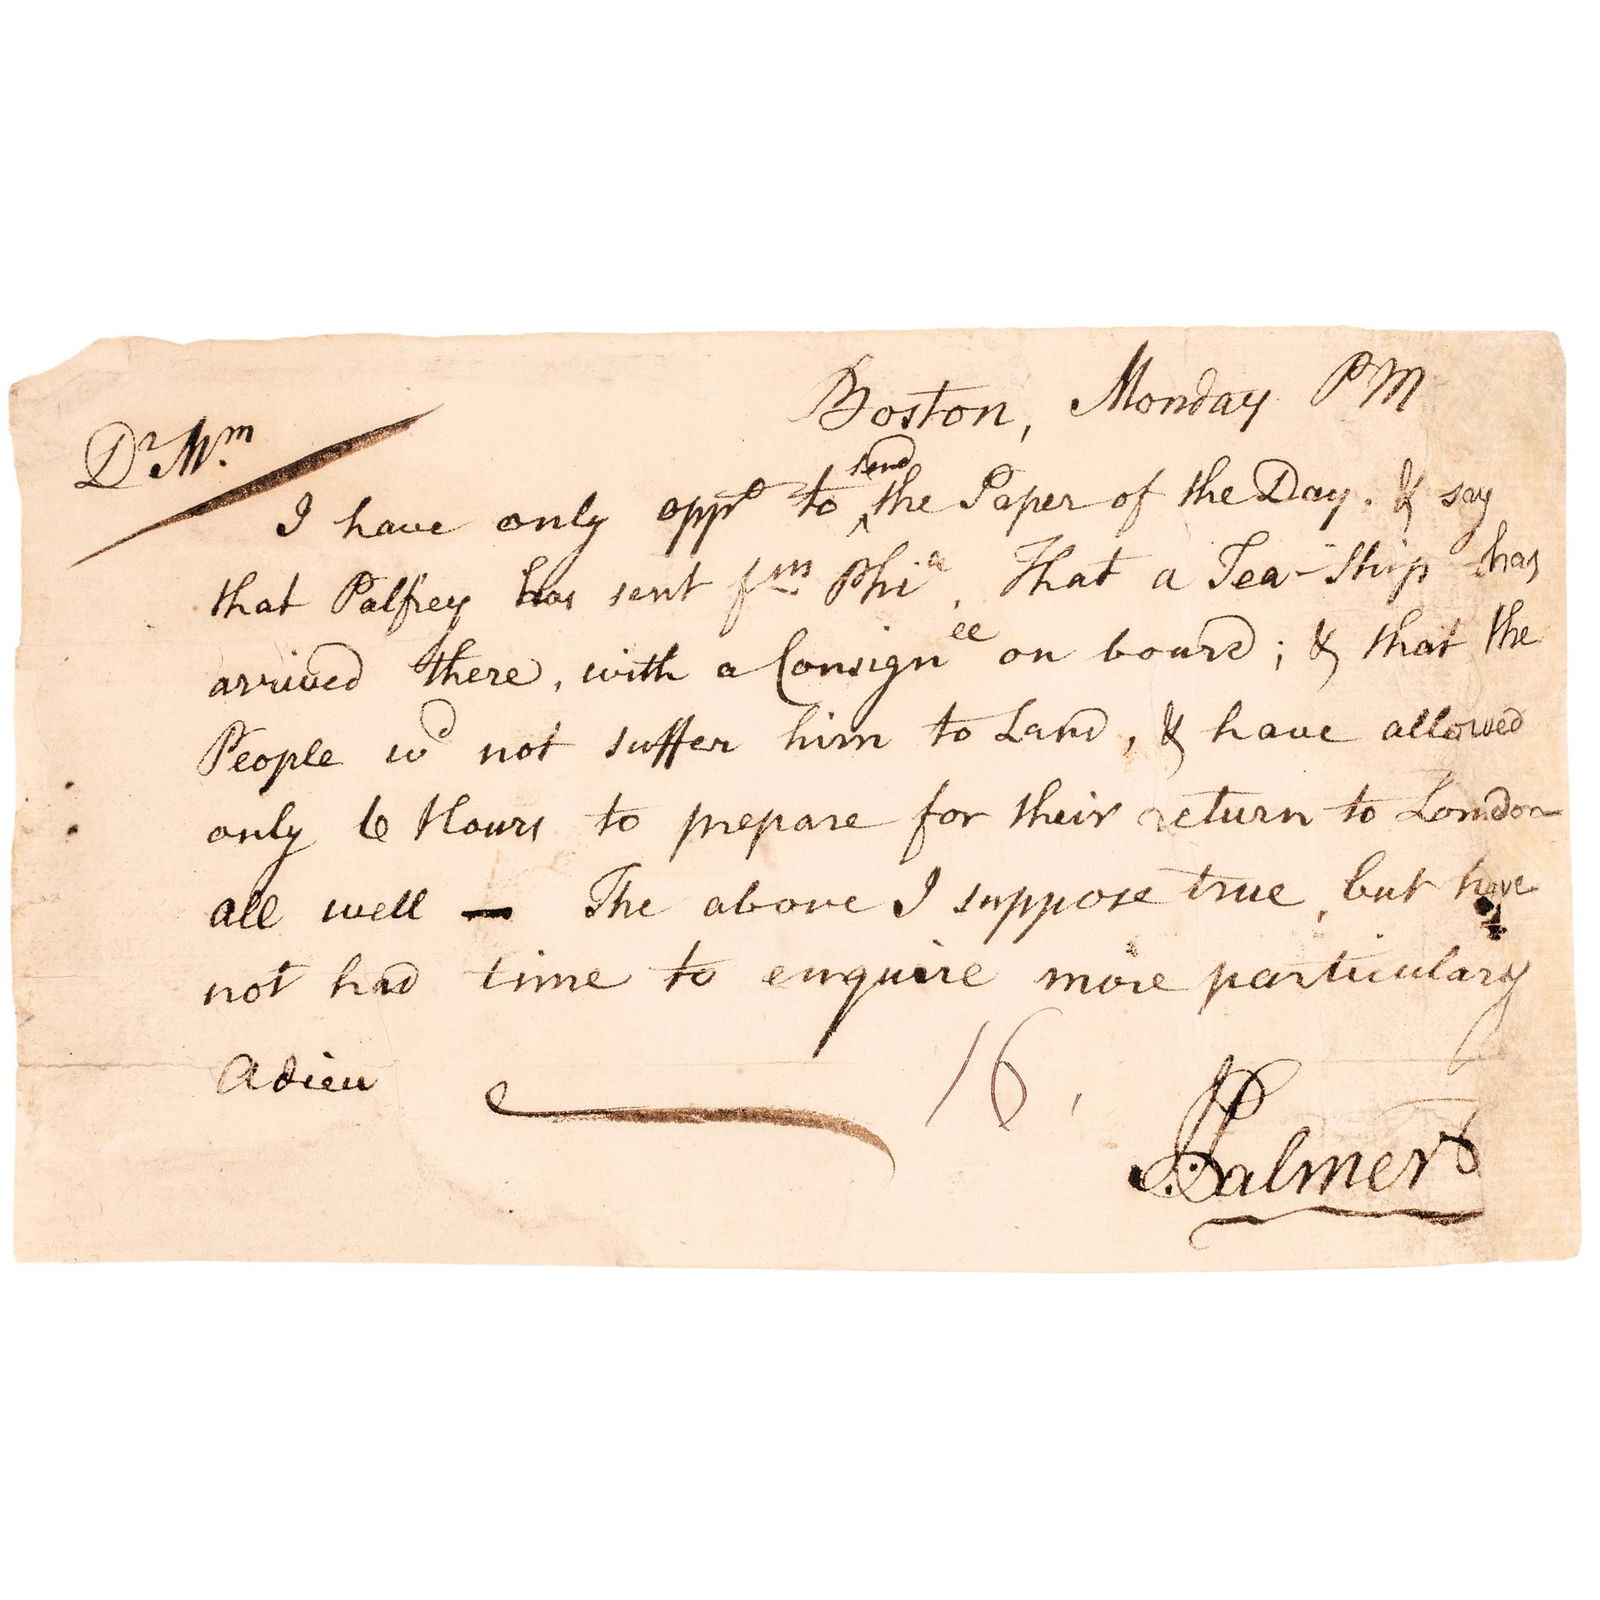 Boston, Monday PM
Dr Wm
I have only oppy to send the Paper of the Day. & say
that Palfrey has sent fm Phia. That a Tea-Ship has
arrived there, with a Consignee on board; & that the
People wd not suffer him to Land, & have allowed
only 6 Hours to prepare for their return to London
all well — The above I suppose true, but have
not had time to enquire more particulary
Adieu
16.
JPalmer